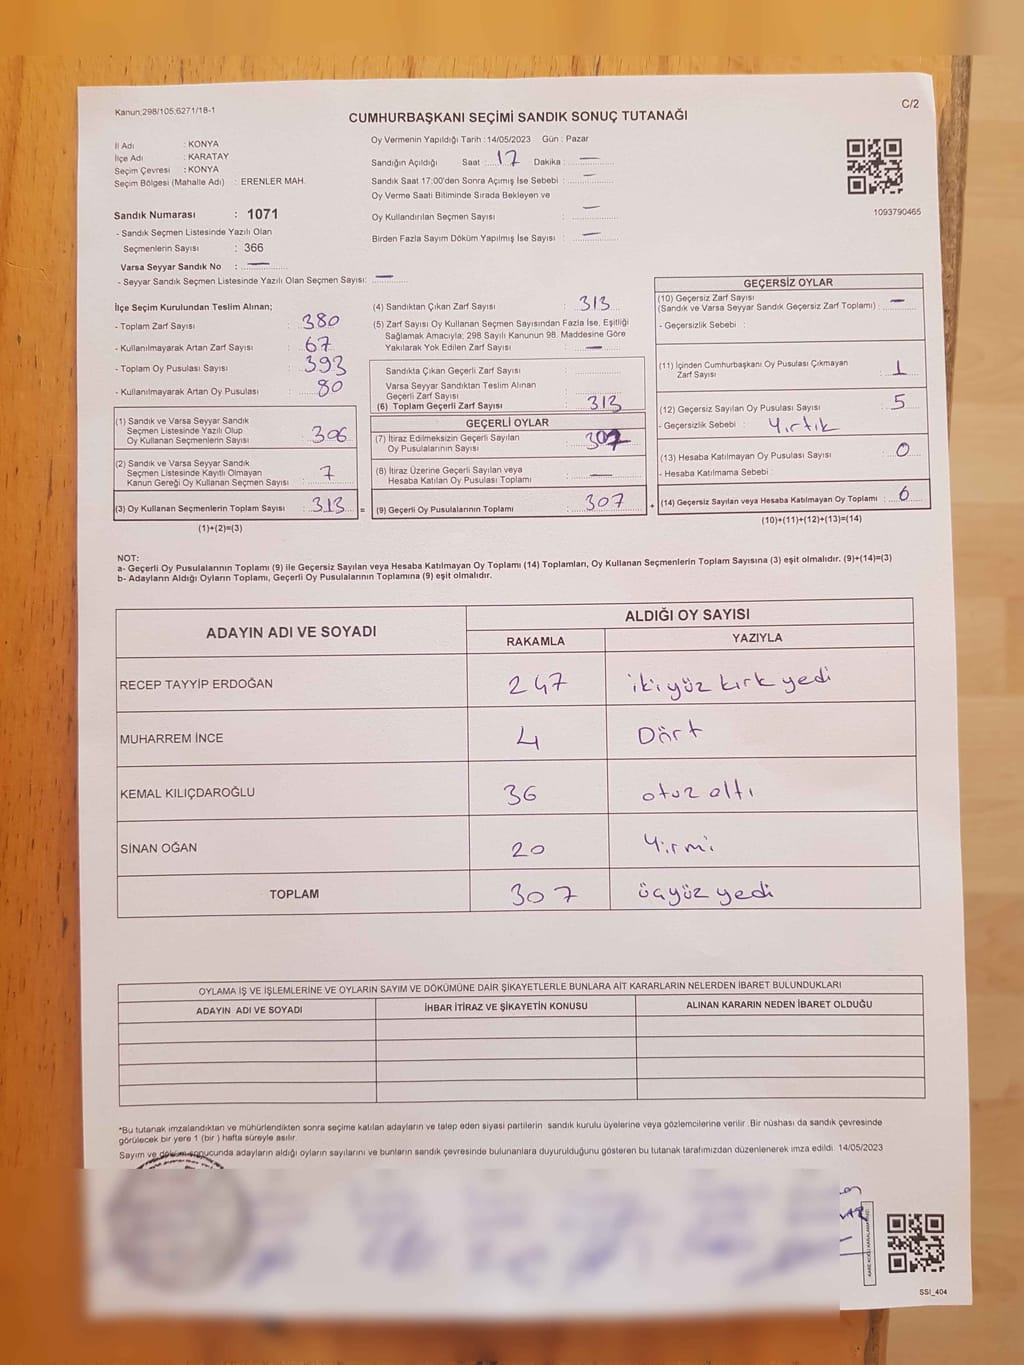 Kanun:298/105;6271/18-1
C/2
CUMHURBAŞKANI SEÇİMİ SANDIK SONUÇ TUTANAĞI
İl Adı : KONYA
İlçe Adı : KARATAY
Seçim Çevresi : KONYA
Seçim Bölgesi (Mahalle Adı) : ERENLER MAH.
Sandık Numarası : 1071
- Sandık Seçmen Listesinde Yazılı Olan
Seçmenlerin Sayısı : 366
Varsa Seyyar Sandık No : —
- Seyyar Sandık Seçmen Listesinde Yazılı Olan Seçmen Sayısı: —
Oy Vermenin Yapıldığı Tarih : 14/05/2023 Gün : Pazar
Sandığın Açıldığı Saat : 17 Dakika : —
Sandık Saat 17:00'den Sonra Açımış İse Sebebi : —
Oy Verme Saati Bitiminde Sırada Bekleyen ve
Oy Kullandırılan Seçmen Sayısı : —
Birden Fazla Sayım Döküm Yapılmış İse Sayısı : —
1093790465
İlçe Seçim Kurulundan Teslim Alınan;
- Toplam Zarf Sayısı : 380
- Kullanılmayarak Artan Zarf Sayısı : 67
- Toplam Oy Pusulası Sayısı : 393
- Kullanılmayarak Artan Oy Pusulası : 80
(1) Sandık ve Varsa Seyyar Sandık
Seçmen Listesinde Yazılı Olup
Oy Kullanan Seçmenlerin Sayısı : 306
(2) Sandık ve Varsa Seyyar Sandık
Seçmen Listesinde Kayıtlı Olmayan
Kanun Gereği Oy Kullanan Seçmen Sayısı : 7
(3) Oy Kullanan Seçmenlerin Toplam Sayısı : 313 =
(1)+(2)=(3)
(4) Sandıktan Çıkan Zarf Sayısı : 313
(5) Zarf Sayısı Oy Kullanan Seçmen Sayısından Fazla İse, Eşitliği
Sağlamak Amacıyla; 298 Sayılı Kanunun 98. Maddesine Göre
Yakılarak Yok Edilen Zarf Sayısı : —
Sandıkta Çıkan Geçerli Zarf Sayısı :
Varsa Seyyar Sandıktan Teslim Alınan
Geçerli Zarf Sayısı :
(6) Toplam Geçerli Zarf Sayısı : 313
GEÇERLİ OYLAR
(7) İtiraz Edilmeksizin Geçerli Sayılan
Oy Pusulalarının Sayısı : 307
(8) İtiraz Üzerine Geçerli Sayılan veya
Hesaba Katılan Oy Pusulası Toplamı : —
(9) Geçerli Oy Pusulalarının Toplamı : 307 +
GEÇERSİZ OYLAR
(10) Geçersiz Zarf Sayısı
(Sandık ve Varsa Seyyar Sandık Geçersiz Zarf Toplamı) : —
- Geçersizlik Sebebi :
(11) İçinden Cumhurbaşkanı Oy Pusulası Çıkmayan
Zarf Sayısı : 1
(12) Geçersiz Sayılan Oy Pusulası Sayısı : 5
- Geçersizlik Sebebi : Yırtık
(13) Hesaba Katılmayan Oy Pusulası Sayısı : 0
- Hesaba Katılmama Sebebi :
(14) Geçersiz Sayılan veya Hesaba Katılmayan Oy Toplamı : 6
(10)+(11)+(12)+(13)=(14)
NOT:
a- Geçerli Oy Pusulalarının Toplamı (9) ile Geçersiz Sayılan veya Hesaba Katılmayan Oy Toplamı (14) Toplamları, Oy Kullanan Seçmenlerin Toplam Sayısına (3) eşit olmalıdır. (9)+(14)=(3)
b- Adayların Aldığı Oyların Toplamı, Geçerli Oy Pusulalarının Toplamına (9) eşit olmalıdır.
ADAYIN ADI VE SOYADI
ALDIĞI OY SAYISI
RAKAMLA YAZIYLA
RECEP TAYYİP ERDOĞAN 247 ikiyüz kırk yedi
MUHARREM İNCE 4 Dört
KEMAL KILIÇDAROĞLU 36 otuz altı
SİNAN OĞAN 20 Yirmi
TOPLAM 307 üçyüz yedi
OYLAMA İŞ VE İŞLEMLERİNE VE OYLARIN SAYIM VE DÖKÜMÜNE DAİR ŞİKAYETLERLE BUNLARA AİT KARARLARIN NELERDEN İBARET BULUNDUKLARI
ADAYIN ADI VE SOYADI İHBAR İTİRAZ VE ŞİKAYETİN KONUSU ALINAN KARARIN NEDEN İBARET OLDUĞU
*Bu tutanak imzalandıktan ve mühürlendikten sonra seçime katılan adayların ve talep eden siyasi partilerin sandık kurulu üyelerine veya gözlemcilerine verilir. Bir nüshası da sandık çevresinde
görülecek bir yere 1 (bir) hafta süreyle asılır.
Sayım ve döküm sonucunda adayların aldığı oyların sayılarını ve bunların sandık çevresinde bulunanlara duyurulduğunu gösteren bu tutanak tarafımızdan düzenlenerek imza edildi. 14/05/2023
SSI_404